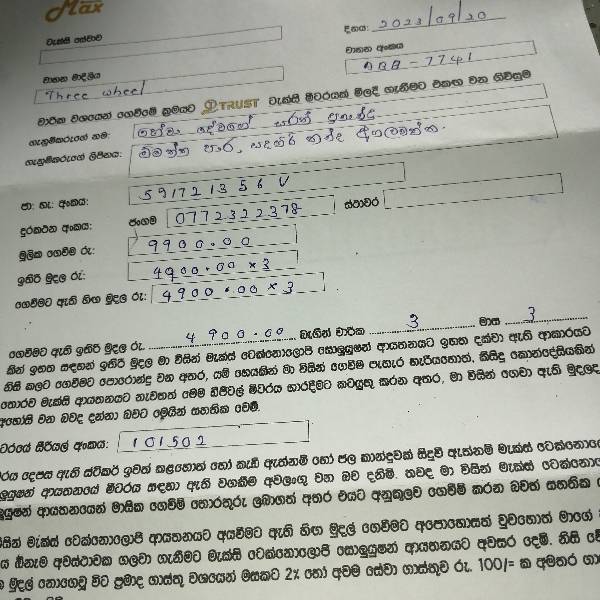 Max
ටැක්සි සේවාව
දිනය: 2023/09/20
වාහන අංකය
ABB - 7741
වාහන මාදිලිය
Three wheel
වාරික වශයෙන් ගෙවීමේ ක්‍රමයට TRUST ටැක්සි මීටරයක් මිලදී ගැනීමට එකඟ වන ගිවිසුම
ගැනුම්කරුගේ නම:
ගැනුම්කරුගේ ලිපිනය: පාර,
ජා: හැ: අංකය: 591721356V
දුරකථන අංකය: ජංගම 0772322378 ස්ථාවර
මූලික ගෙවීම රු: 9900.00
ඉතිරි මුදල රු: 4900.00 x 3
ගෙවීමට ඇති හිඟ මුදල රු: 4900.00 x 3
ගෙවීමට ඇති ඉතිරි මුදල රු. 4900.00 බැගින් වාරික 3 මාස 3
කින් ඉහත සඳහන් ඉතිරි මුදල මා විසින් මැක්ස් ටෙක්නොලොජි සොලුයුෂන් ආයතනයට ඉහත දක්වා ඇති ආකාරයට
නිසි කලට ගෙවීමට පොරොන්දු වන අතර, යම් හෙයකින් මා විසින් ගෙවීම පැහැර හැරියහොත්, කිසිදු කොන්දේසියකින්
තොරව මැක්සි ආයතනයට නැවතත් මෙම ඩිජිටල් මීටරය භාරදීමට කටයුතු කරන අතර, මා විසින් ගෙවා ඇති මුදලද
අහෝසි වන බවද දන්නා බවට මෙයින් සහතික වෙමි.
ටරයේ සීරියල් අංකය: 101502
ටරය දෙපස ඇති ස්ටිකර් ඉවත් කළහොත් හෝ කැඩී ඇත්නම් හෝ ජල කාන්දුවක් සිදුවී ඇත්නම් මැක්ස් ටෙක්නොලො
ලුයුෂන් ආයතනයේ මීටරය සඳහා ඇති වගකීම අවලංගු වන බව දනිමි. තවද මා විසින් මැක්ස් ටෙක්නොලො
ලුයුෂන් ආයතනයෙන් මාසික ගෙවීම් තොරතුරු ලබාගත් අතර එයට අනුකූලව ගෙවීම් කරන බවත් සහතික ව
විසින් මැක්ස් ටෙක්නොලොජි ආයතනයට අයවීමට ඇති හිඟ මුදල් ගෙවීමට අපොහොසත් වුවහොත් මාගේ
ය ඕනෑම අවස්ථාවක ගලවා ගැනීමට මැක්සි ටෙක්නොලොජි සොලුයුෂන් ආයතනයට අවසර දෙමි. නිසි වේ
මුදල් නොගෙවූ විට ප්‍රමාද ගාස්තු වශයෙන් මසකට 2% හෝ අවම සේවා ගාස්තුව රු. 100/= ක අමතර ගා